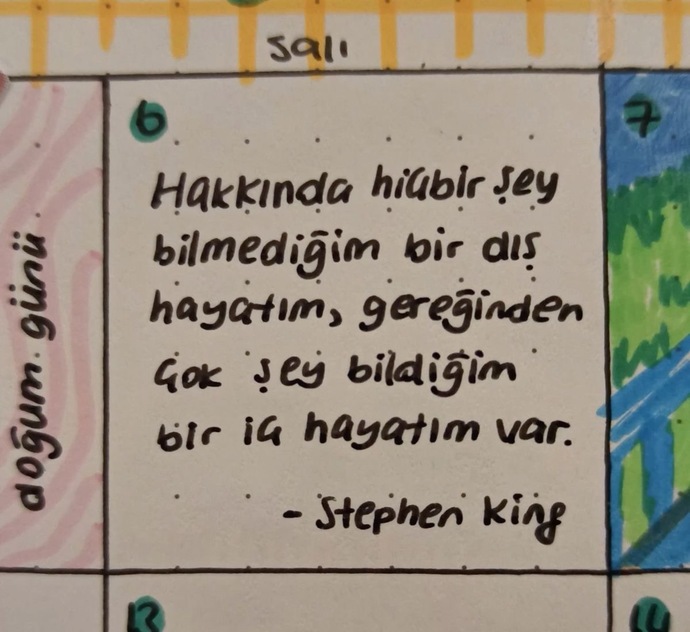 salı
6
7
Hakkında hiçbir şey
bilmediğim bir dış
hayatım, gereğinden
çok şey bildiğim
bir iç hayatım var.
- Stephen King
doğum günü
13
14